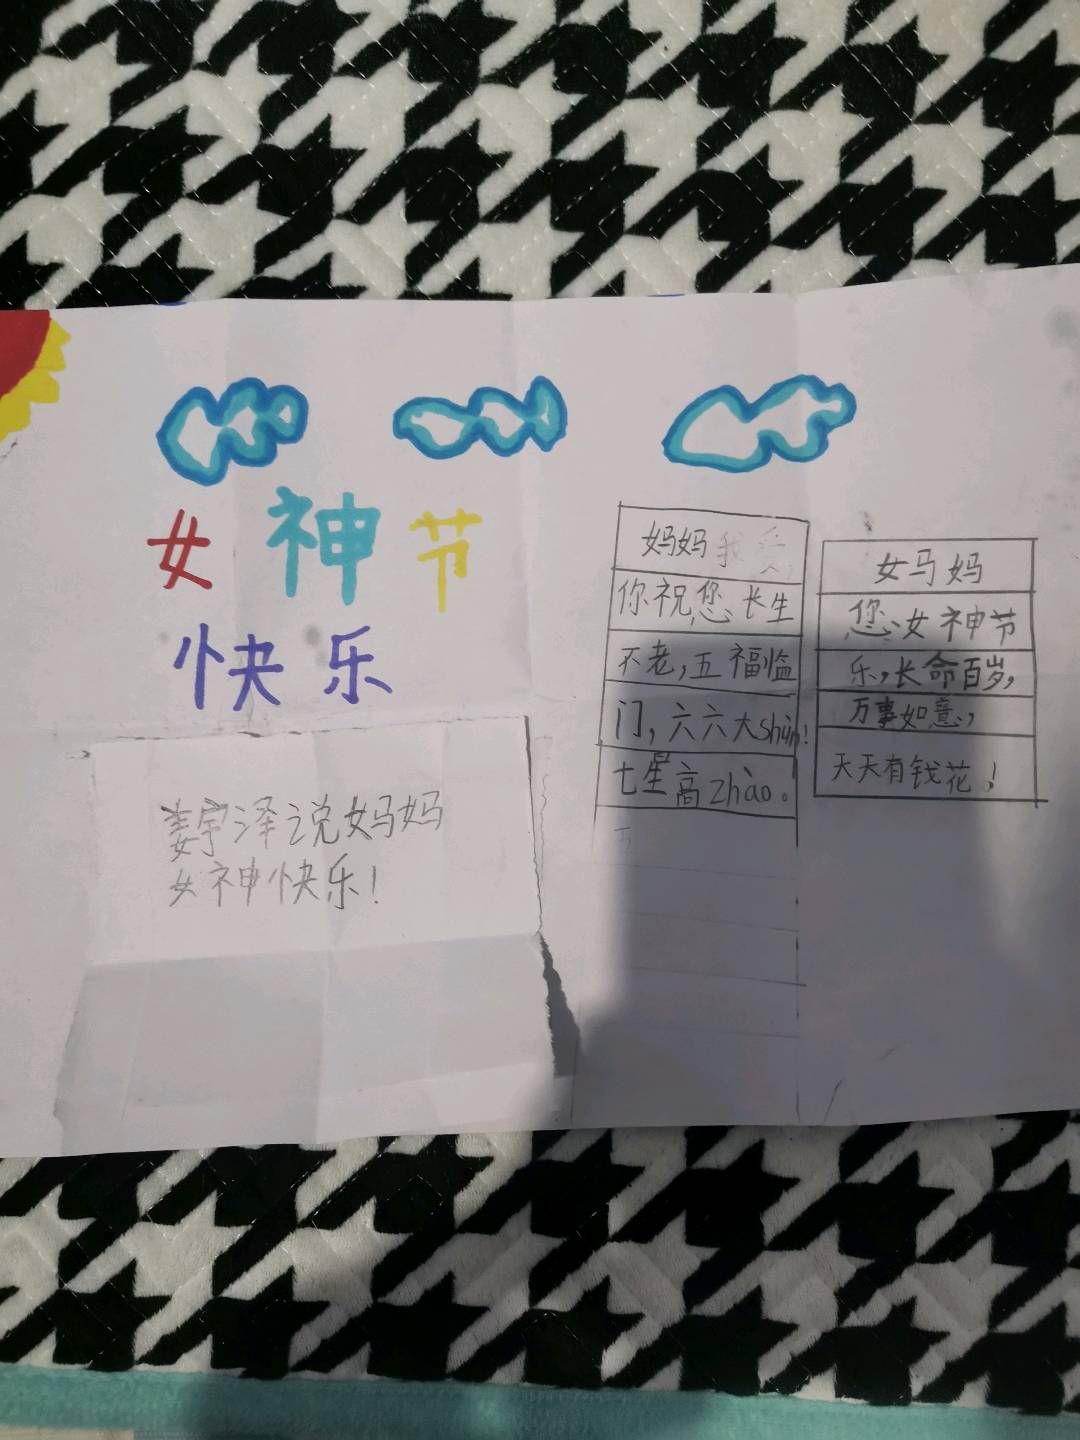 女神节
快乐
姜宇泽说妈妈
女神快乐！
妈妈我爱
你祝您长生
不老，五福临
门，六六大shùn！
七星高zhào。
五
妈妈
您女神节
乐，长命百岁，
万事如意，
天天有钱花！